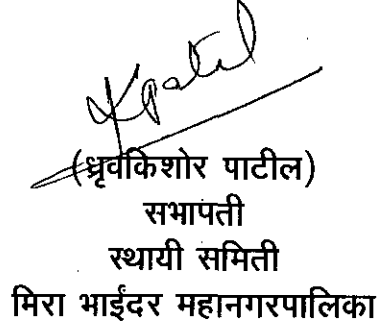 Kpatil
(ध्रृवकिशोर पाटील)
सभापती
स्थायी समिती
मिरा भाईंदर महानगरपालिका